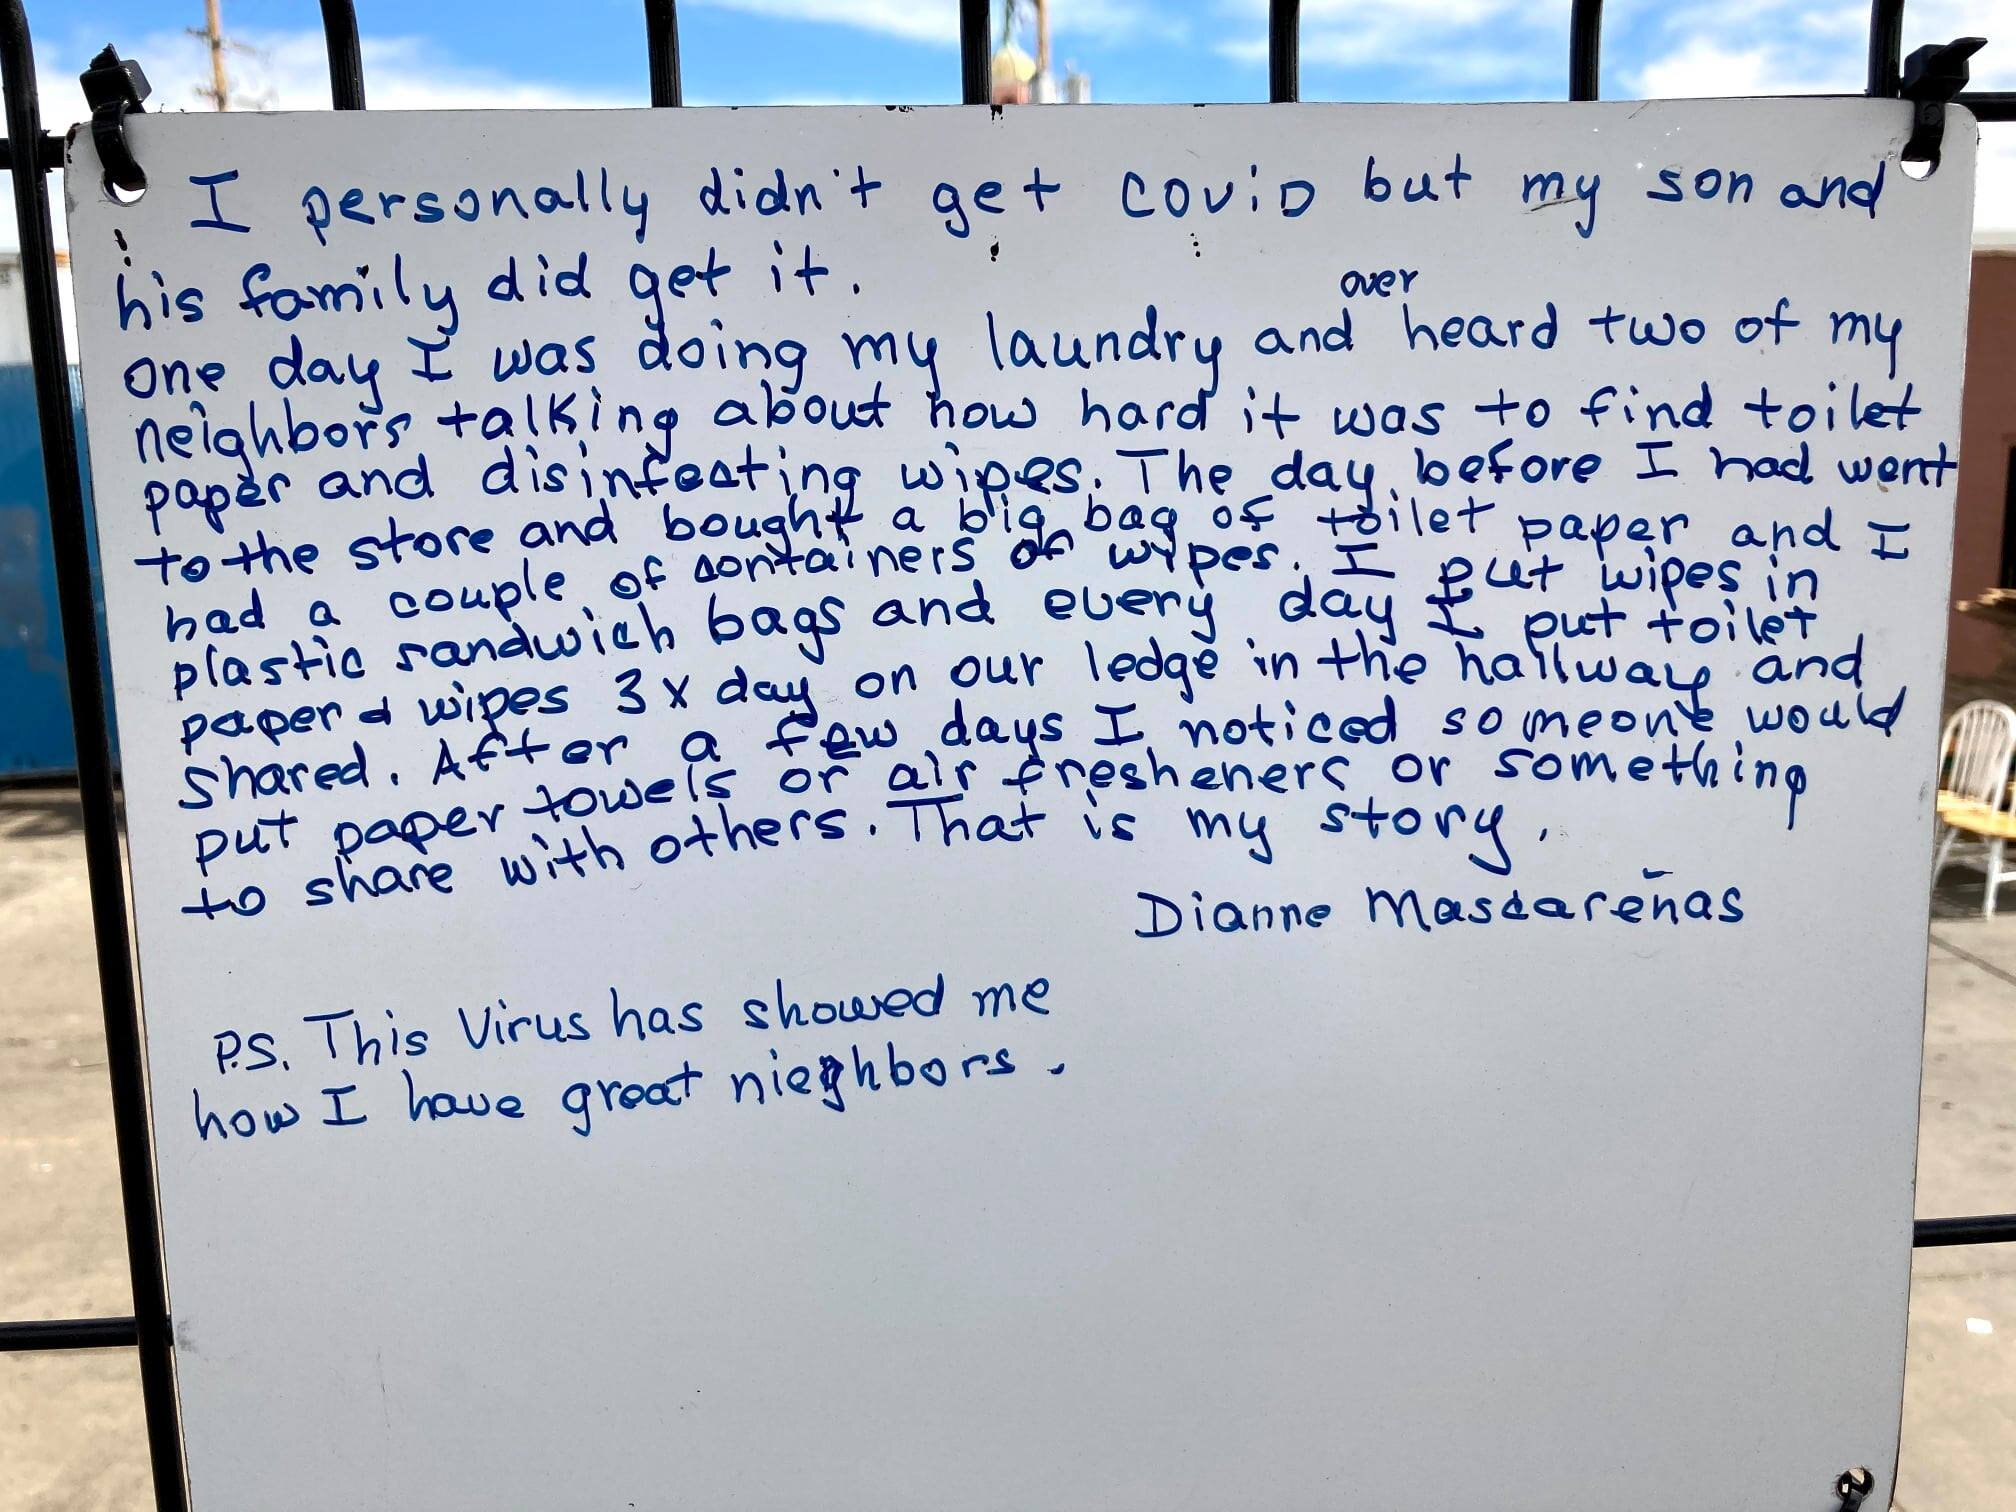 I personally didn't get COVID but my son and
his family did get it.
one day I was doing my laundry and over heard two of my
neighbors talking about how hard it was to find toilet
paper and disinfecting wipes. The day before I had went
to the store and bought a big bag of toilet paper and I
had a couple of containers of wipes. I put wipes in
plastic sandwich bags and every day I put toilet
paper & wipes 3x day on our ledge in the hallway and
shared. After a few days I noticed someone would
put paper towels or air fresheners or something
to share with others. That is my story.
Dianne Mascareñas
P.S. This Virus has showed me
how I have great nieghbors.